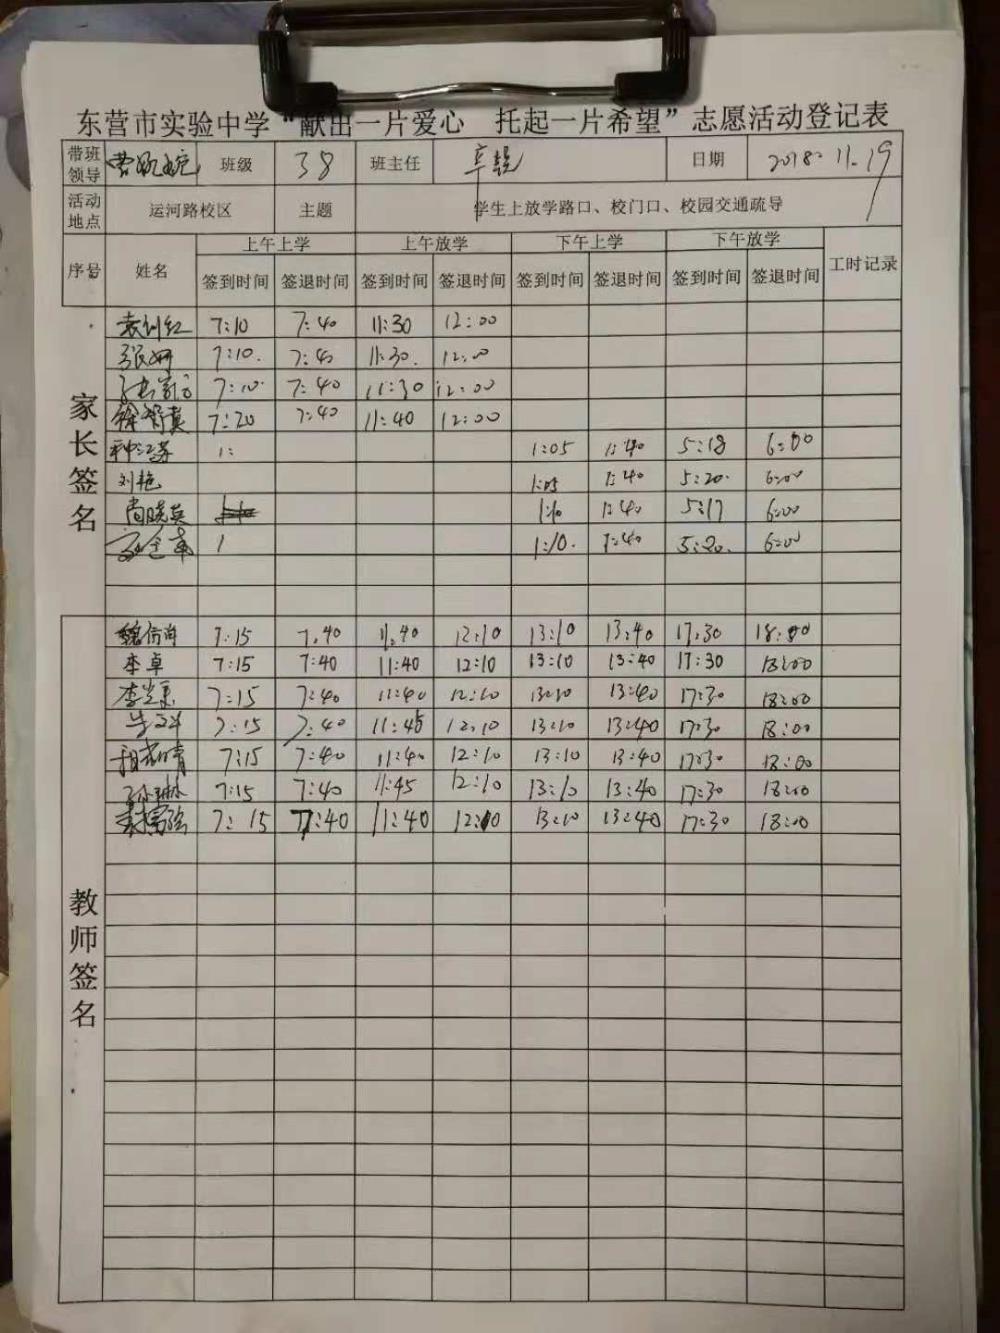 东营市实验中学“献出一片爱心 托起一片希望”志愿活动登记表
带班领导 班级 38 班主任 辛 日期 2018.11.19
活动地点 运河路校区 主题 学生上放学路口、校门口、校园交通疏导
序号 姓名 上午上学 上午放学 下午上学 下午放学 工时记录
签到时间 签退时间 签到时间 签退时间 签到时间 签退时间 签到时间 签退时间
家长签名
7:10 7:40 11:30 12:00
张 7:10. 7:40 11:30. 12:00
7:10. 7:40 11:30 12:00
徐 7:20 7:40 11:40 12:00
1: 1:05 1:40 5:18 6:00
刘艳 1:05 1:40 5:20. 6:00
尚晓英 1:10 1:40 5:17 6:00
1 1:10. 1:40 5:20. 6:00
教师签名
魏 7:15 7:40 11:40 12:10 13:10 13:40 17:30 18:00
李卓 7:15 7:40 11:40 12:10 13:10 13:40 17:30 18:00
李 7:15 7:40 11:40 12:10 13:10 13:40 17:30 18:00
7:15 7:40 11:45 12:10 13:10 13:40 17:30 18:00
7:15 7:40 11:40 12:10 13:10 13:40 17:30 18:00
孙琳 7:15 7:40 11:45 12:10 13:10 13:40 17:30 18:00
7:15 7:40 11:40 12:10 13:10 13:40 17:30 18:00